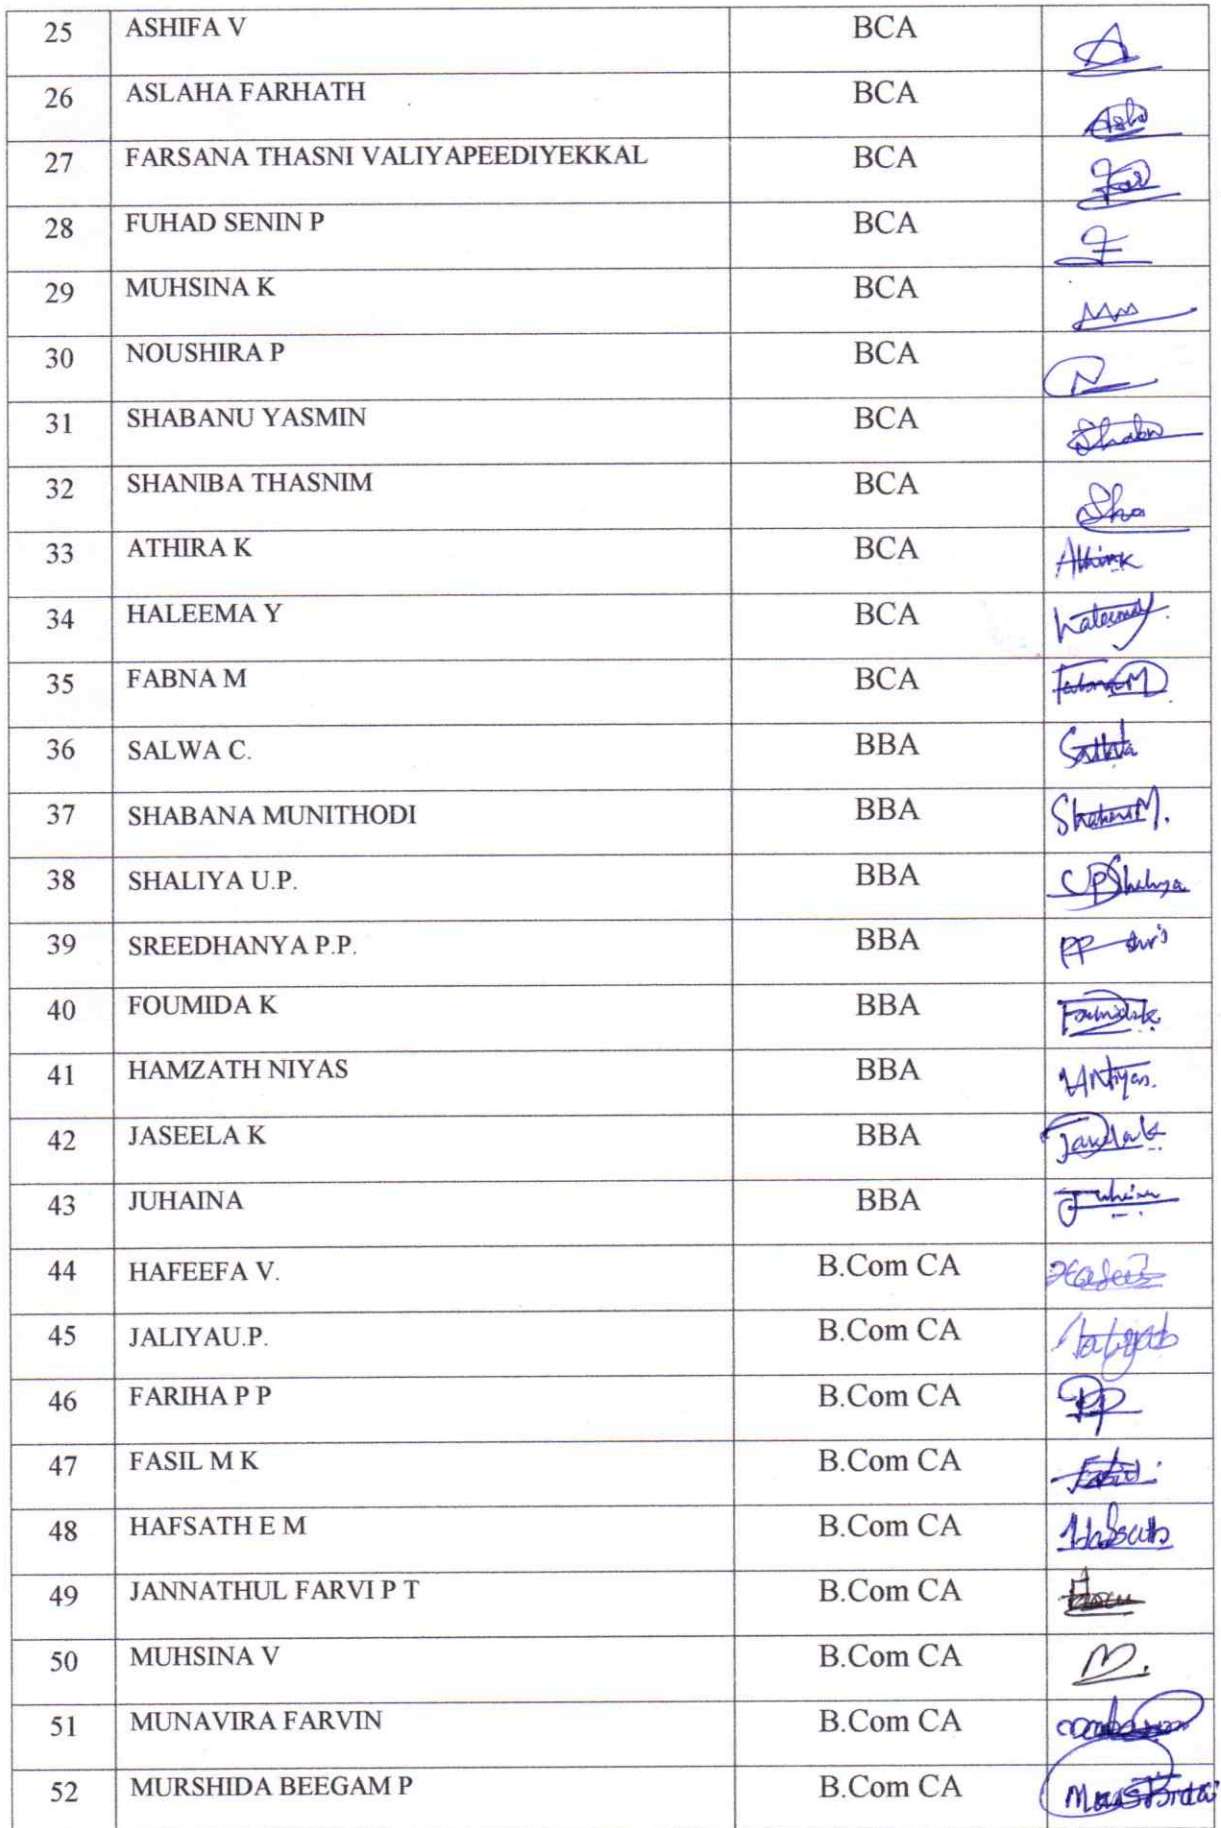 25 ASHIFA V BCA A
26 ASLAHA FARHATH BCA
27 FARSANA THASNI VALIYAPEEDIYEKKAL BCA
28 FUHAD SENIN P BCA F
29 MUHSINA K BCA
30 NOUSHIRA P BCA N
31 SHABANU YASMIN BCA
32 SHANIBA THASNIM BCA Sha
33 ATHIRA K BCA
34 HALEEMA Y BCA
35 FABNA M BCA
36 SALWA C. BBA
37 SHABANA MUNITHODI BBA
38 SHALIYA U.P. BBA
39 SREEDHANYA P.P. BBA
40 FOUMIDA K BBA
41 HAMZATH NIYAS BBA
42 JASEELA K BBA
43 JUHAINA BBA
44 HAFEEFA V. B.Com CA
45 JALIYAU.P. B.Com CA
46 FARIHA P P B.Com CA
47 FASIL M K B.Com CA
48 HAFSATH E M B.Com CA
49 JANNATHUL FARVI P T B.Com CA
50 MUHSINA V B.Com CA M.
51 MUNAVIRA FARVIN B.Com CA
52 MURSHIDA BEEGAM P B.Com CA